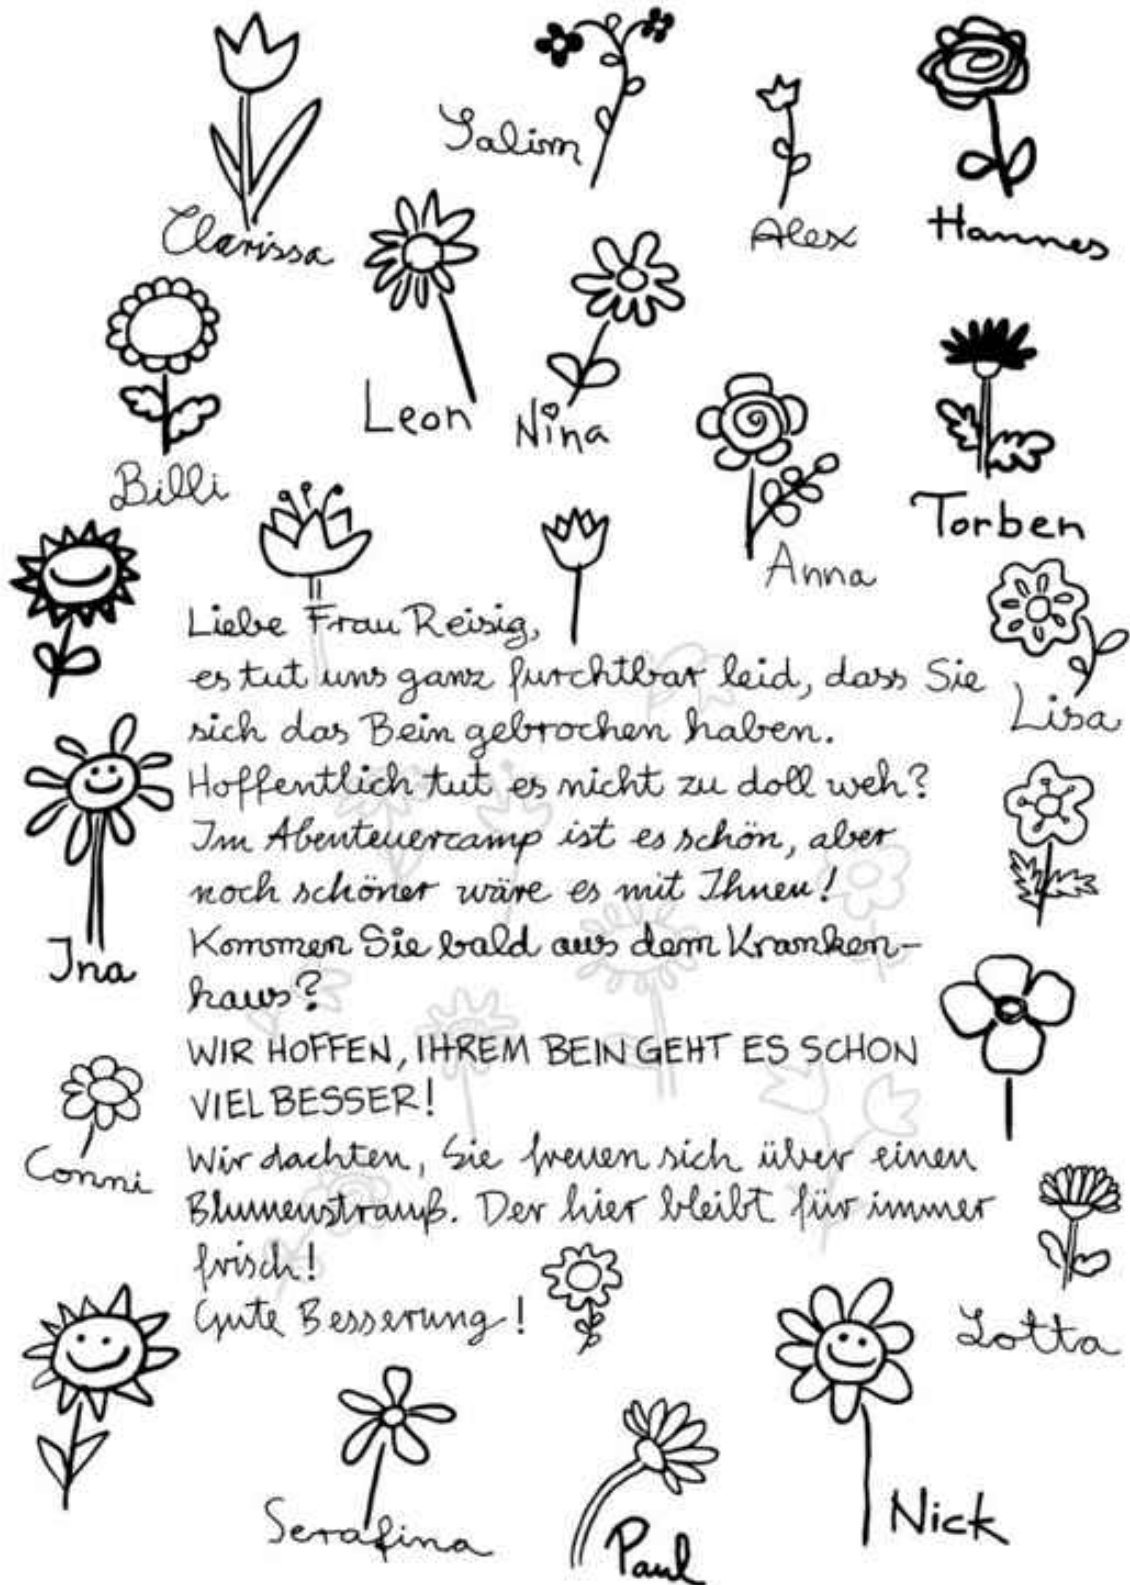 Salim
Clarissa
Alex
Hannes
Leon
Nina
Billi
Torben
Anna
Liebe Frau Reisig,
es tut uns ganz furchtbar leid, dass Sie
sich das Bein gebrochen haben.
Lisa
Hoffentlich tut es nicht zu doll weh?
Im Abenteuercamp ist es schön, aber
noch schöner wäre es mit Ihnen!
Kommen Sie bald aus dem Kranken-
haus?
Ina
WIR HOFFEN, IHREM BEIN GEHT ES SCHON
VIEL BESSER!
Wir dachten, Sie freuen sich über einen
Conni
Blumenstrauß. Der hier bleibt für immer
frisch!
Gute Besserung!
Lotta
Serafina
Paul
Nick